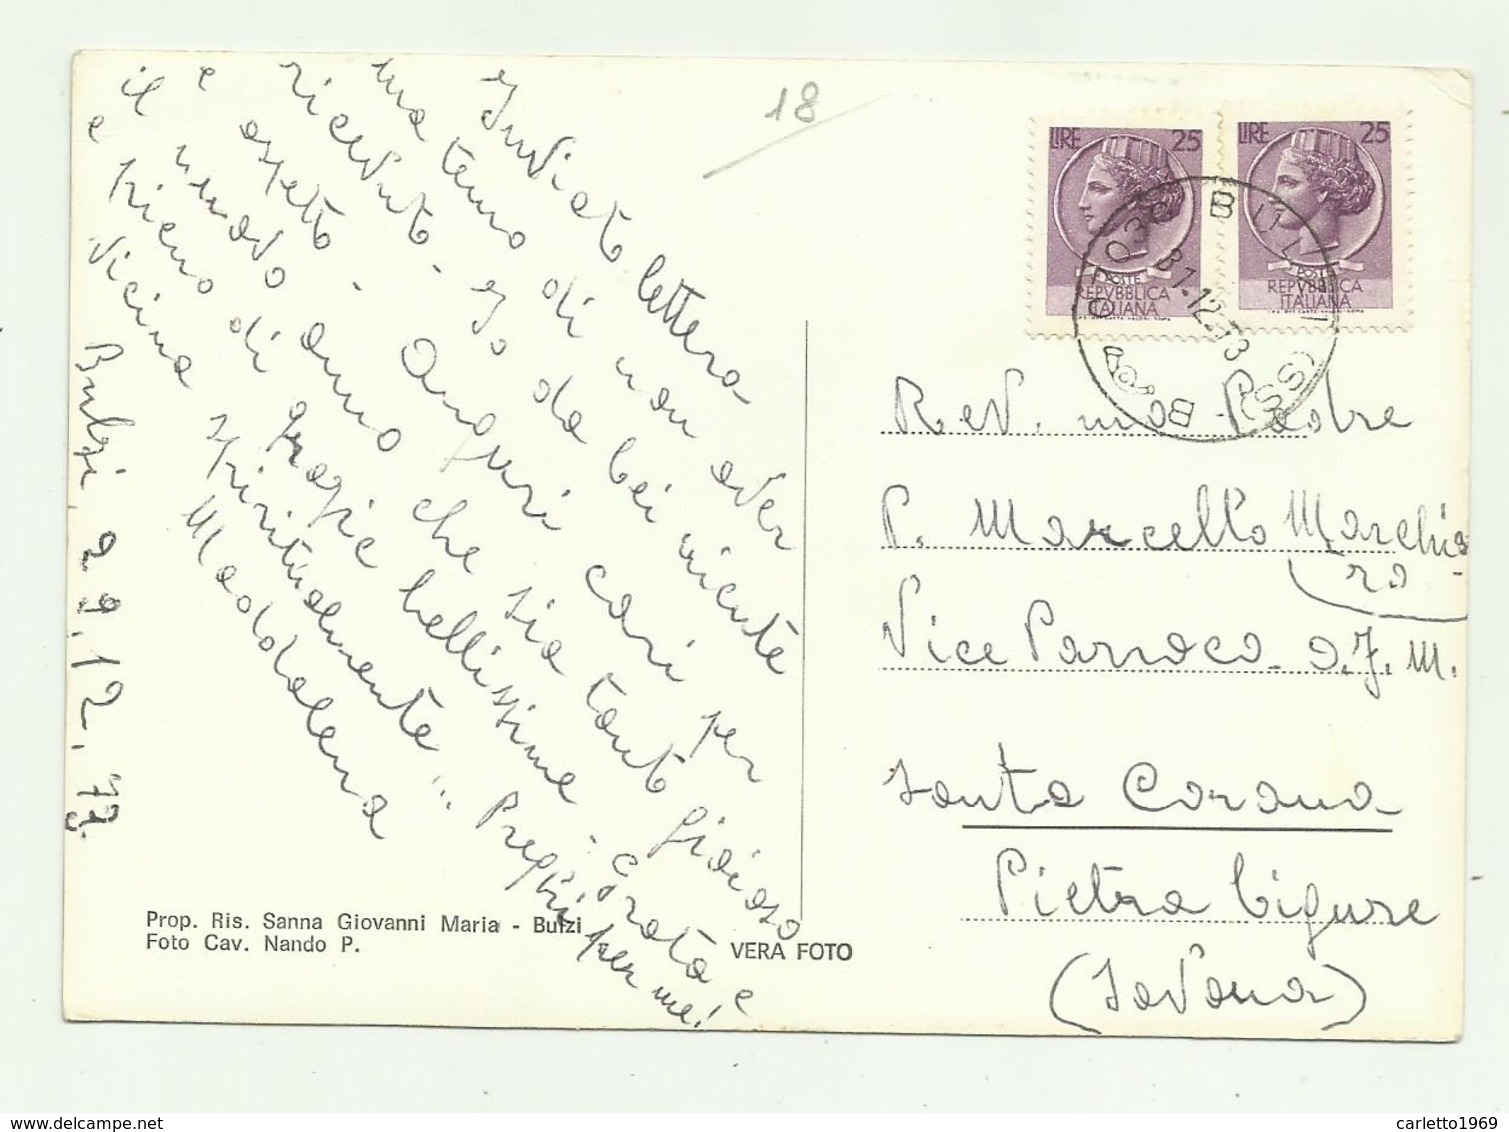 18
LIRE 25
POSTE
REPVBBLICA
ITALIANA
LIRE 25
POSTE
REPVBBLICA
ITALIANA
BULZI (SS)
31.12.73
Inviato lettera
ma temo di non aver
ricevuto - Io da lei niente
e aspetto - Auguri cari per
il nuovo anno che sia tanto gioioso
e pieno di grazie bellissime - e grata e
vicina spiritualmente... Preghi per me!
Maddalena
Bulzi, 29.12.73.
Rev. mo Padre
P. Marcello Marchia
ro
Vice Parroco O.F.M.
Santa Corona
Pietra Ligure
(Savona)
Prop. Ris. Sanna Giovanni Maria - Bulzi
Foto Cav. Nando P.
VERA FOTO
delcampe.net
carletto1969